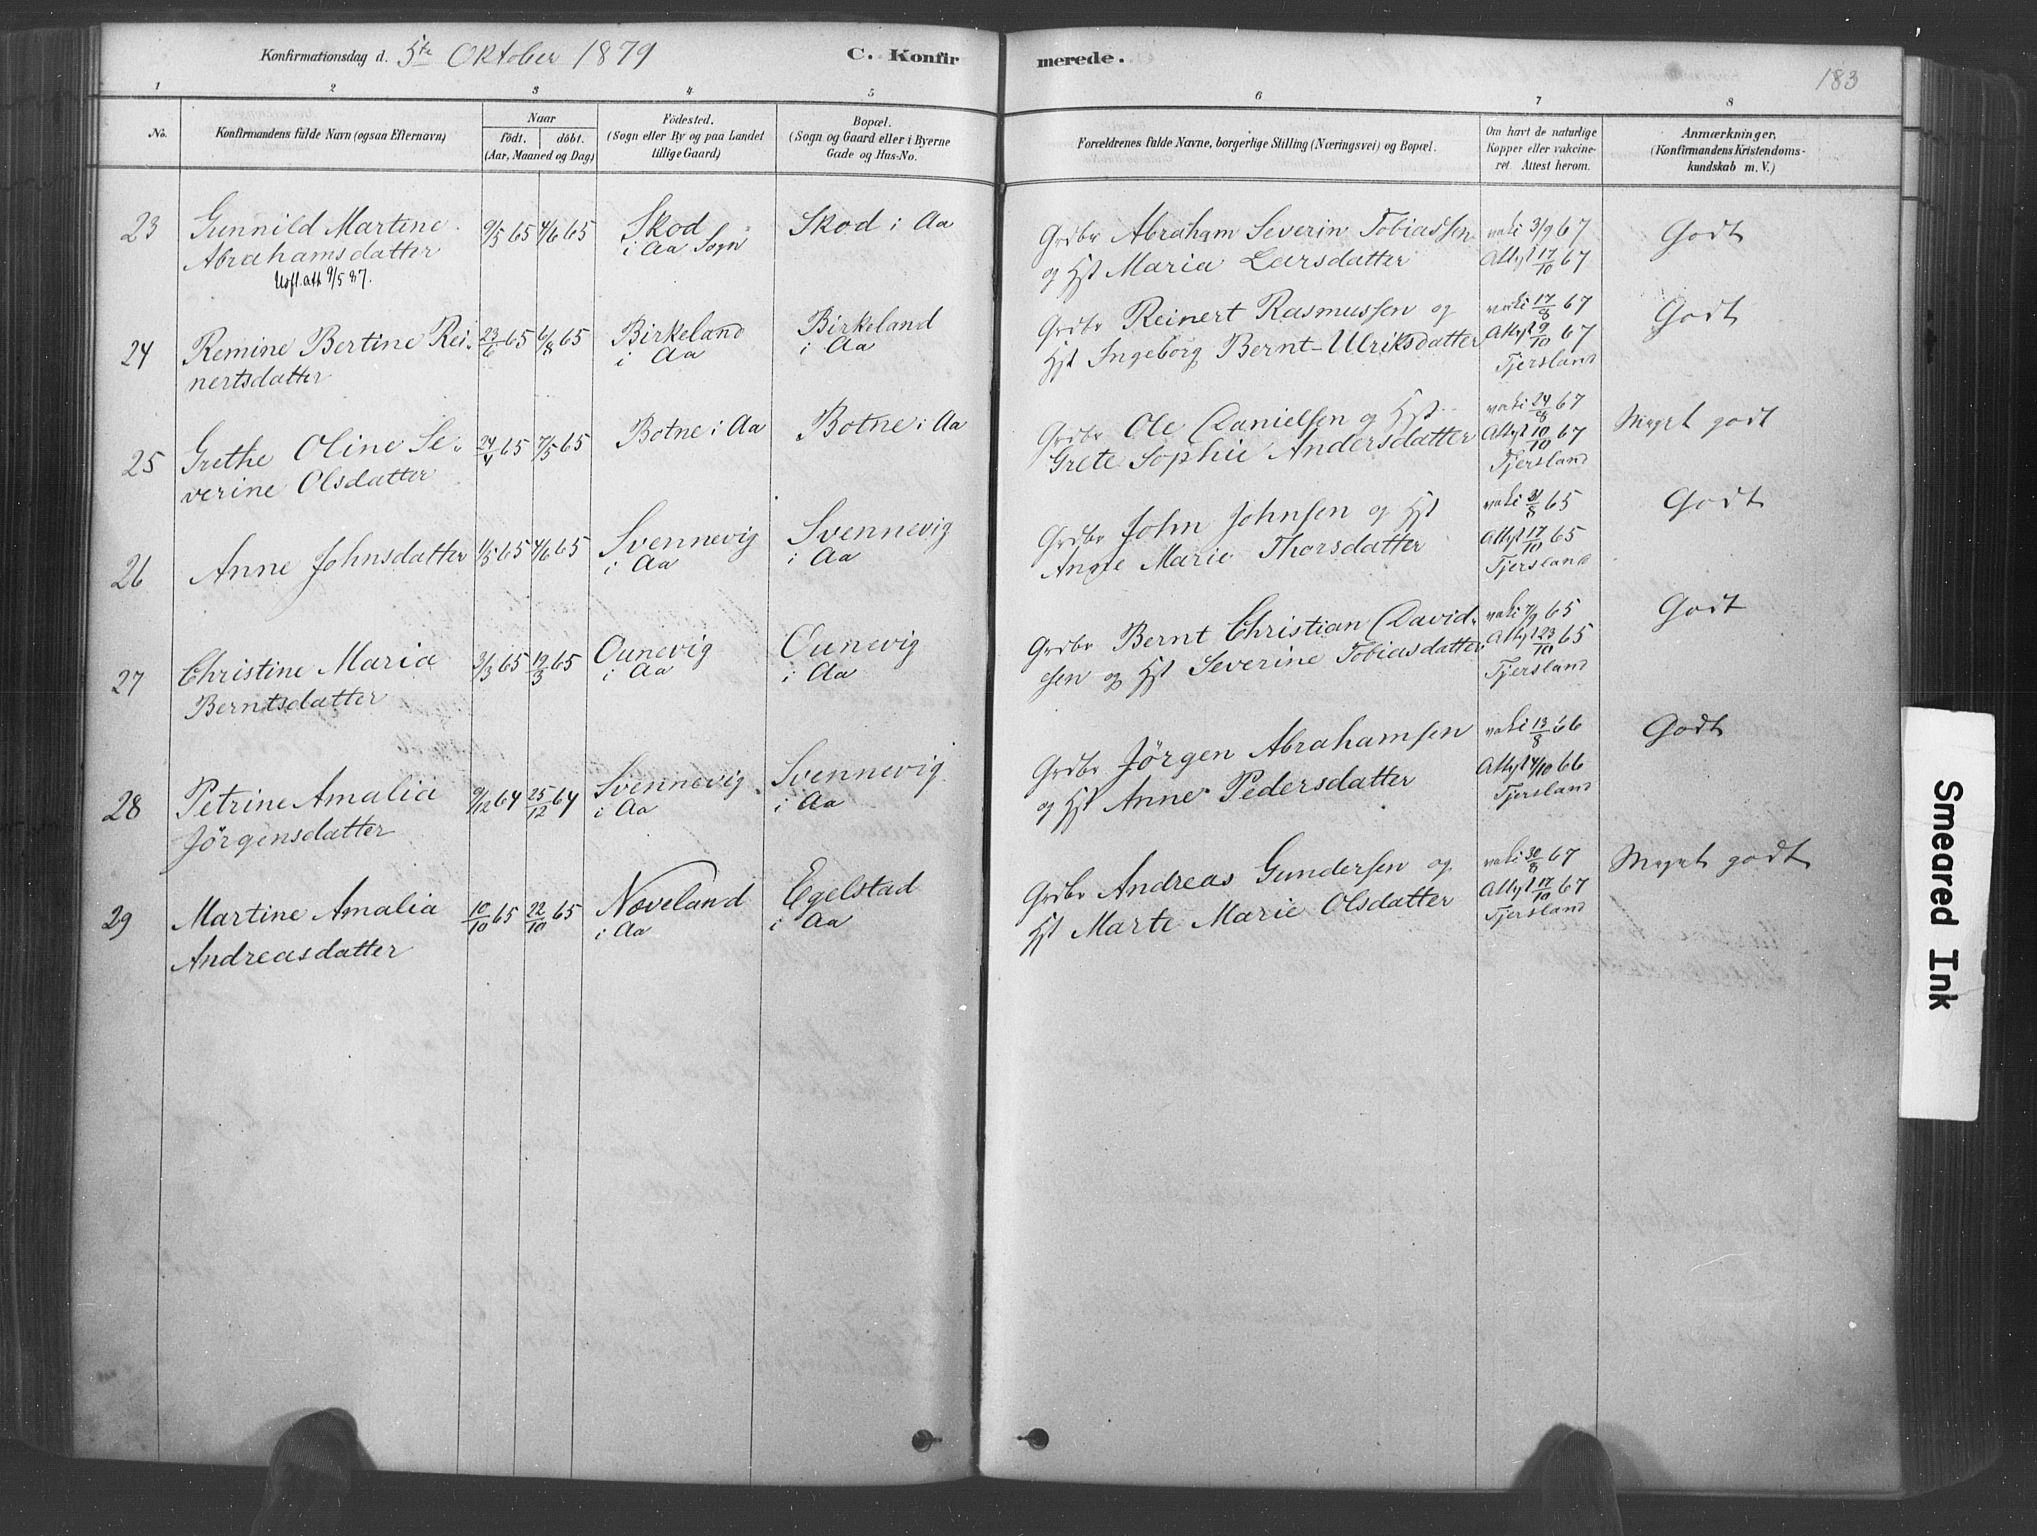 Konfirmationsdag d. 5te Oktober 1879
C. Konfir
merede.
183
1 2 3 4 5 6 7 8
No.
Konfirmandens fulde Navn (ogsaa Efternavn)
Naar
födt. döbt.
(Aar, Maaned og Dag)
Födested.
(Sogn eller By og paa Landet
tillige Gaard)
Bopæl.
(Sogn og Gaard eller i Byerne
Gade og Hus-No.
Forældrenes fulde Navne, borgerlige Stilling (Næringsvei) og Bopæl.
Om havt de naturlige
Kopper eller vakcine-
ret. Attest herom.
Anmærkninger,
(Konfirmandens Kristendoms-
kundskab m. V.)
23 Gunnild Martine 9/5 65 4/6 65 Skod Skod i Aa Grdbr Abraham Severin Tobiassen vaki 3/9 67 Godt
Abrahamsdatter i Aa Sogn og Hst Maria Larsdatter Attest 17/10 67
Utfl. att 9/5 87.
24 Remine Bertine Rei- 23/6 65 6/8 65 Birkeland Birkeland Grdbr Reinert Rasmussen og vaki 17/8 67 Godt
nertsdatter i Aa i Aa Hst Ingeborg Bernt-Ulriksdatter Attest 9/10 67
Tjersland
25 Grethe Oline Se- 24/4 65 7/5 65 Botne i Aa Botne i Aa Grdbr Ole Danielsen og Hst vaki 24/8 67 Meget godt
verine Olsdatter Grete Sophie Andersdatter Attest 10/10 67
Tjersland
26 Anne Johnsdatter 1/5 65 4/6 65 Svennevig Svennevig Grdbr John Johnsen og Hst vaki 31/8 65 Godt
i Aa i Aa Anne Marie Thorsdatter Attest 17/10 65
Tjersland
27 Christine Maria 3/3 65 19/3 65 Ounevig Ounevig Grdbr Bernt Christian David- vaki 7/9 65 Godt
Berntsdatter i Aa i Aa sen og Hst Severine Tobiasdatter Attest 23/10 65
Tjersland
28 Petrine Amalia 9/12 64 25/12 64 Svennevig Svennevig Grdbr Jørgen Abrahamsen vaki 13/8 66 Godt
Jørgensdatter i Aa i Aa og Hst Anne Pedersdatter Attest 4/10 66
Tjersland
29 Martine Amalia 10/10 65 22/10 65 Nøveland Egelstad Grdbr Andreas Gundersen og vaki 30/8 67 Meget godt
Andreasdatter i Aa i Aa Hst Marte Marie Olsdatter Attest 17/10 67
Tjersland
Smeared Ink